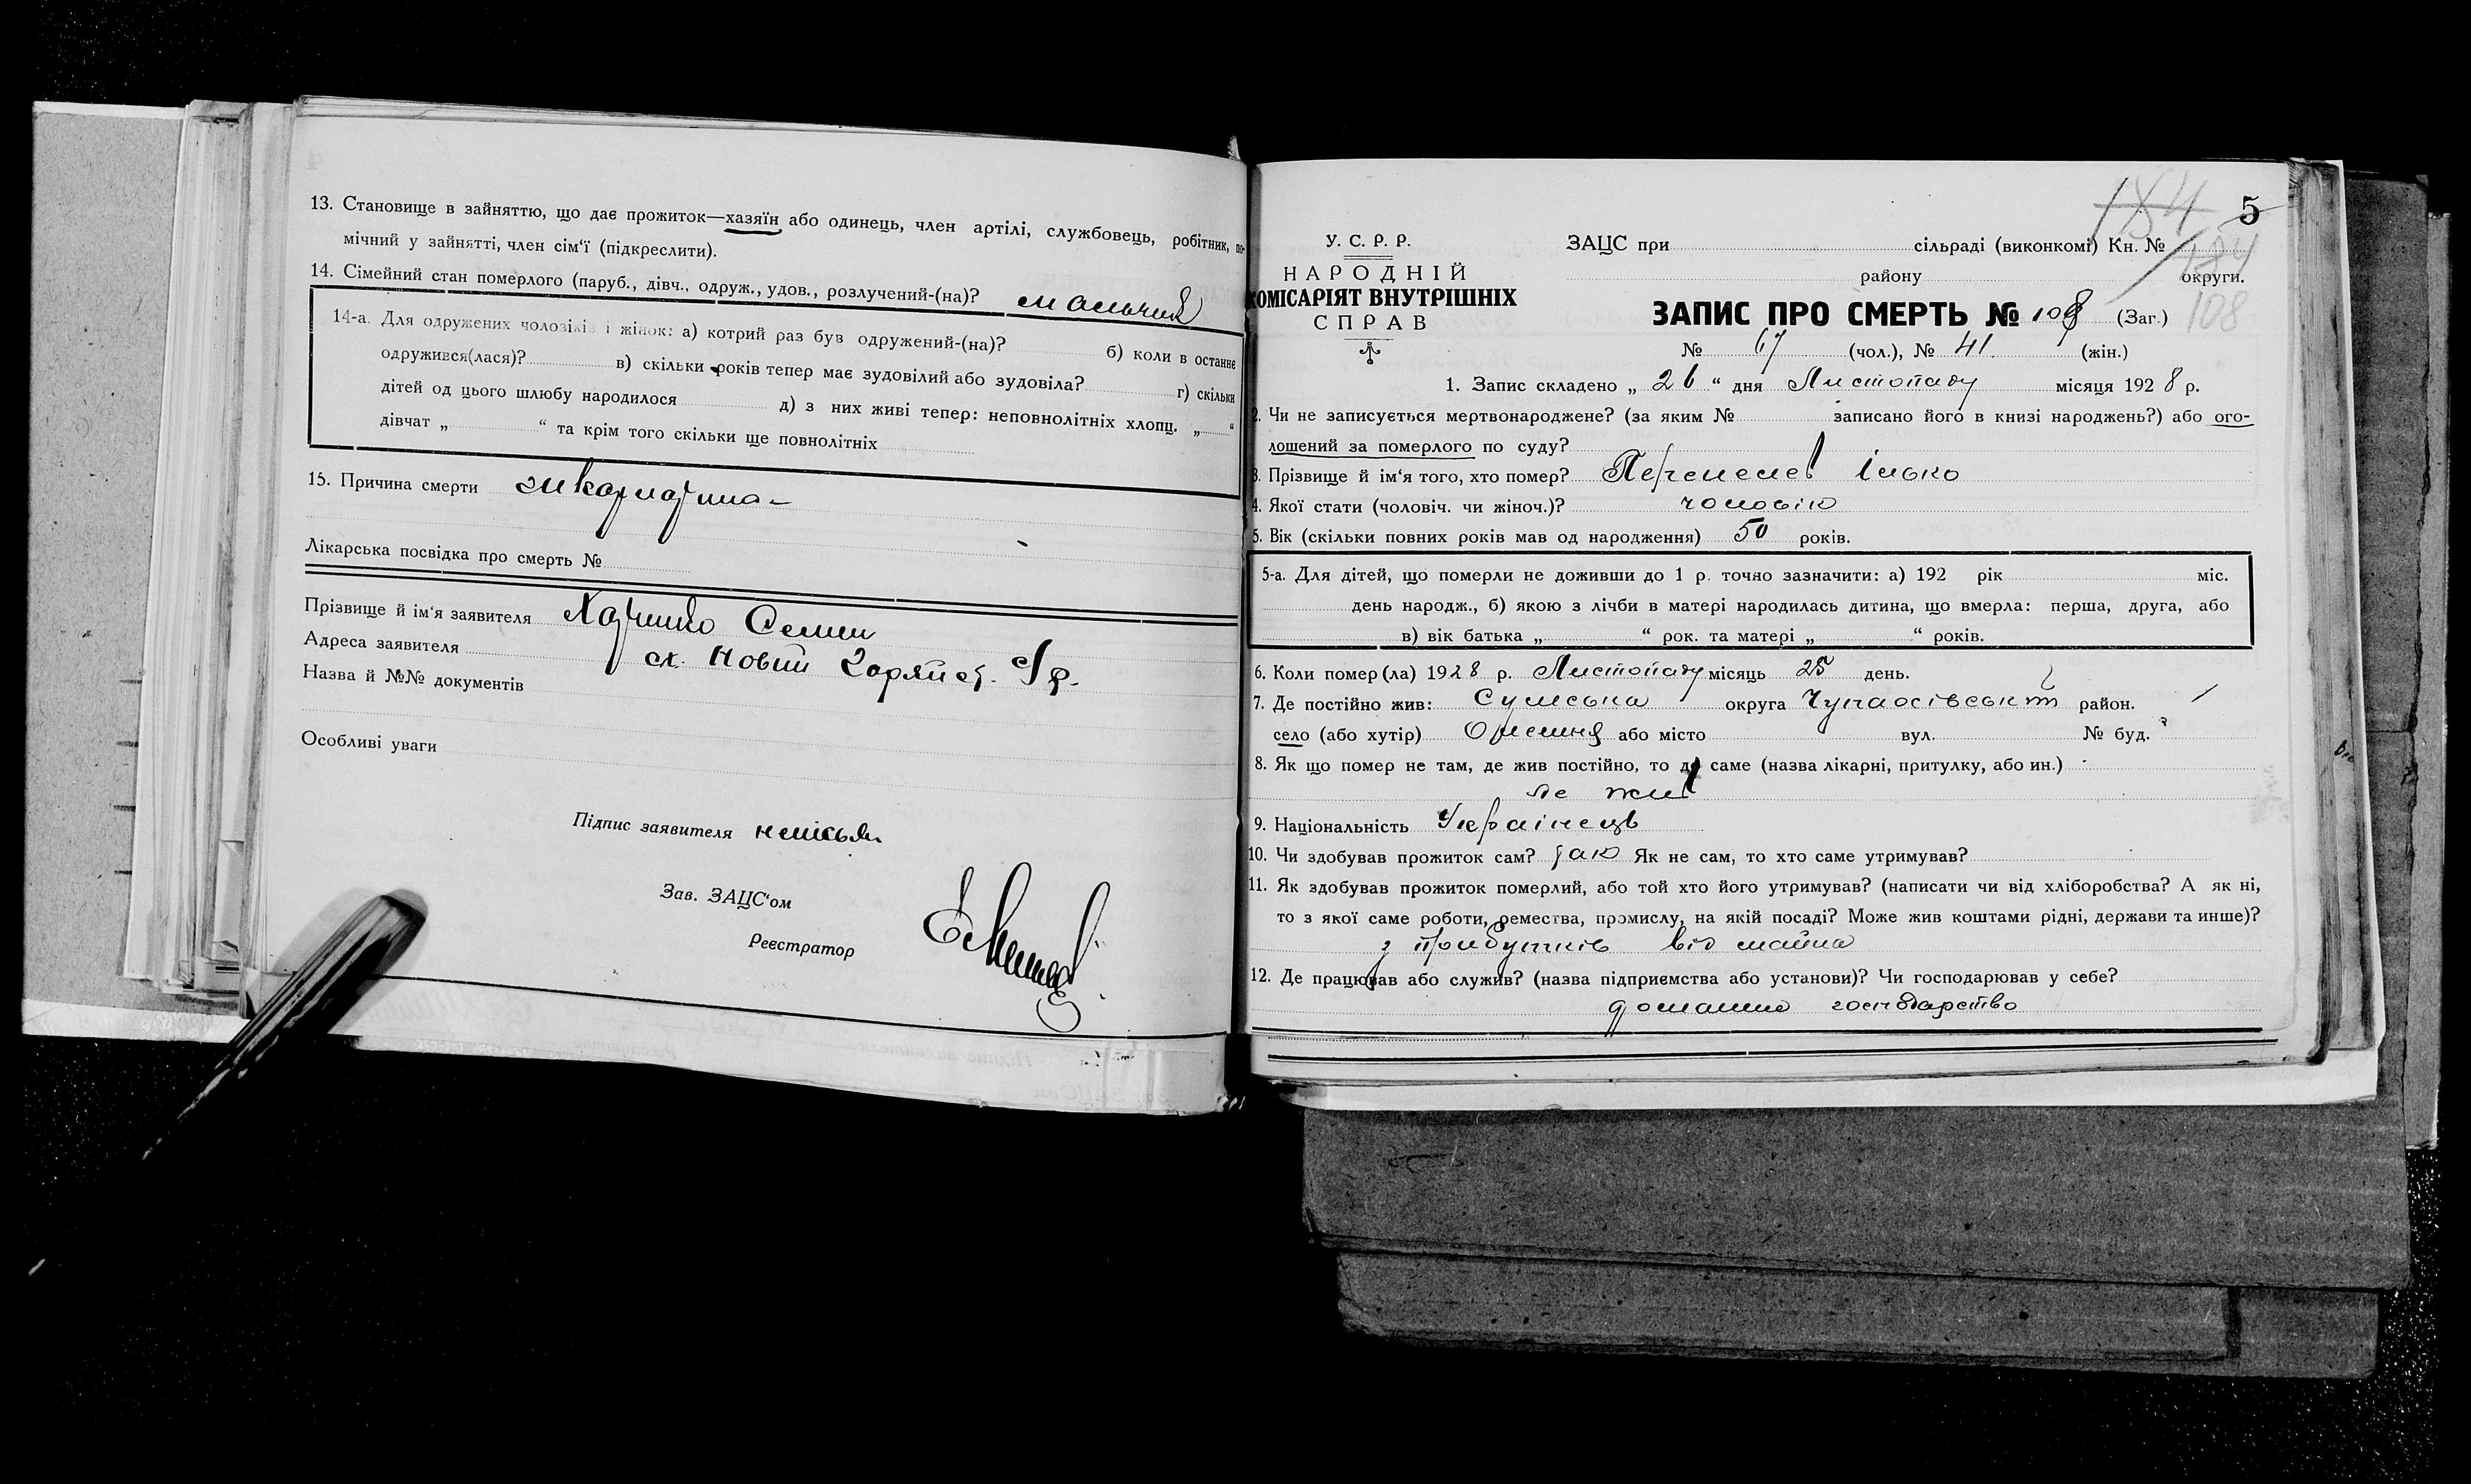 13. Становище в зайняттю, що дає прожиток—хазяїн або одинець, член артілі, службовець, робітник, по-
мічний у зайнятті, член сім'ї (підкреслити).
14. Сімейний стан померлого (паруб., дівч., одруж., удов., розлучений-(на)? мальчик
14-а. Для одружених чоловіків і жінок: а) котрий раз був одружений-(на)? б) коли в останнє
одружився(лася)? в) скільки років тепер має зудовілий або зудовіла? г) скільки
дітей од цього шлюбу народилося д) з них живі тепер: неповнолітніх хлопц. „ “
дівчат „ “ та крім того скільки ще повнолітніх
15. Причина смерти
Лікарська посвідка про смерть №
Прізвище й ім'я заявителя Харченко Семен
Адреса заявителя сл. Новий
Назва й №№ документів
Особливі уваги
Підпис заявителя неписьм
Зав. ЗАЦС'ом
Реєстратор
5
184
У. С. Р. Р.
НАРОДНІЙ
КОМІСАРІЯТ ВНУТРІШНІХ
СПРАВ
ЗАЦС при сільраді (виконкомі) Кн. № 184
району округи.
ЗАПИС ПРО СМЕРТЬ № 108 (Заг.) 108
№ 67 (чол.), № 41. (жін.)
1. Запис складено „ 26 “ дня Листопаду місяця 1928 р.
2. Чи не записується мертвонароджене? (за яким № записано його в книзі народжень?) або ого-
лошений за померлого по суду?
3. Прізвище й ім'я того, хто помер? Перепелев Ілько
4. Якої стати (чоловіч. чи жіноч.)? чоловік
5. Вік (скільки повних років мав од народження) 50 років.
5-а. Для дітей, що померли не доживши до 1 р. точно зазначити: а) 192 рік міс.
день народж., б) якою з лічби в матері народилась дитина, що вмерла: перша, друга, або
в) вік батька „ “ рок. та матері „ “ років.
6. Коли помер(ла) 1928 р. Листопаду місяць 25 день.
7. Де постійно жив: Сумська округа район.
село (або хутір) або місто вул. № буд.
8. Як що помер не там, де жив постійно, то де саме (назва лікарні, притулку, або ин.)
де жив
9. Національність Українець
10. Чи здобував прожиток сам? так Як не сам, то хто саме утримував?
11. Як здобував прожиток померлий, або той хто його утримував? (написати чи від хліборобства? А як ні,
то з якої саме роботи, ремества, промислу, на якій посаді? Може жив коштами рідні, держави та инше)?
з прибутків від майна
12. Де працював або служив? (назва підприємства або установи)? Чи господарював у себе?
домашнє господарство